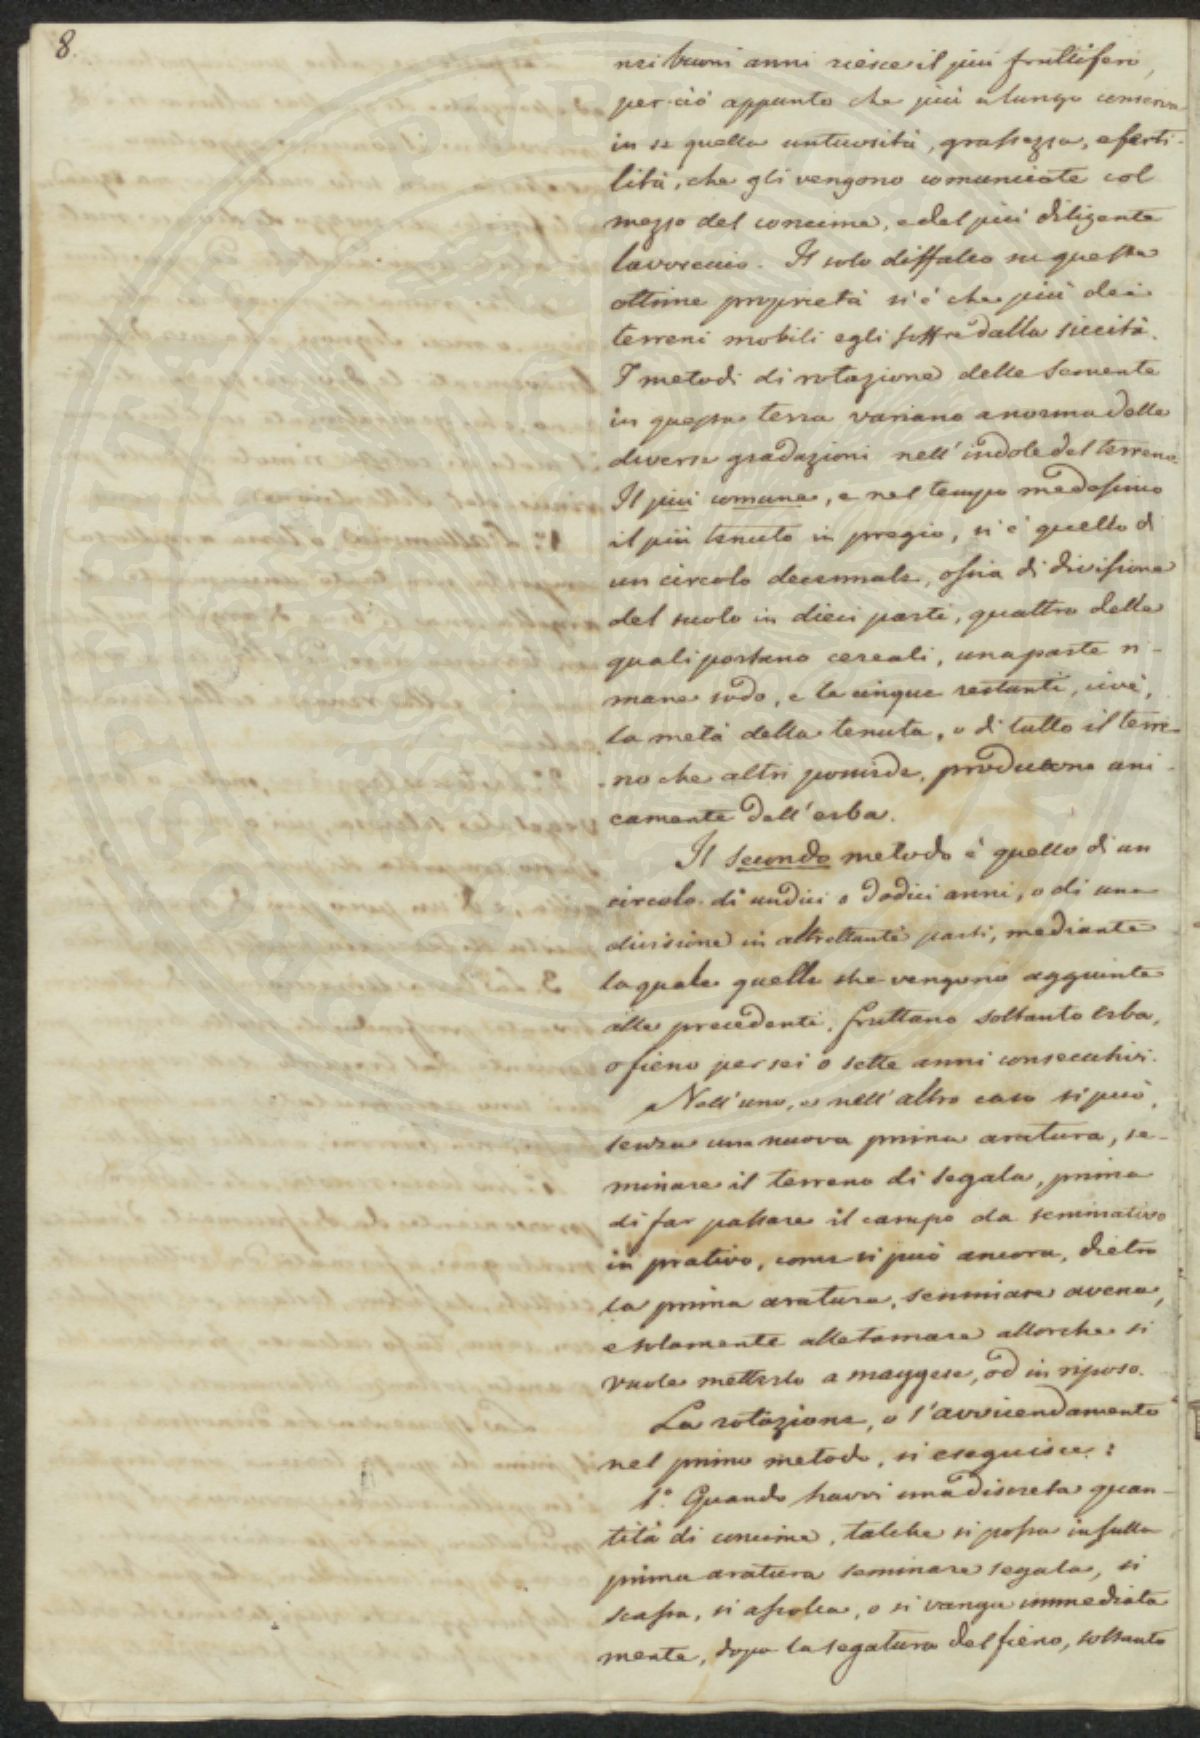 8.
nei buoni anni riesce il più fruttifero,
per ciò appunto che più a lungo conserva
in se quella untuosità, grassezza, e ferti-
lità, che gli vengono comunicate col
mezzo del concime, e del più diligente
lavoreccio. Il solo diffalco su queste
ottime proprietà si è che più dei
terreni mobili egli soffre dalla siccità.
I metodi di rotazione delle semente
in questa terra variano a norma delle
diverse gradazioni nell'indole del terreno.
Il più comune, e nel tempo medesimo
il più tenuto in pregio, si è quello di
un circolo decennale, ossia di divisione
del suolo in dieci parti, quattro delle
quali portano cereali, una parte ri-
mane sodo, e le cinque restanti, cioè,
la metà della tenuta, o di tutto il terre-
no che altri possiede, producono uni-
camente dell'erba.
Il secondo metodo è quello di un
circolo di undici o dodici anni, o di una
divisione in altrettante parti, mediante
la quale quelle che vengono aggiunte
alle precedenti, fruttano soltanto erba,
o fieno per sei o sette anni consecutivi.
Nell'uno, e nell'altro caso si può,
senza una nuova prima aratura, se-
minare il terreno di segala, prima
di far passare il campo da seminativo
in prativo, come si può ancora, dietro
la prima aratura, seminare avena,
e solamente alletamare allorche si
vuole metterlo a maggese, od in riposo.
La rotazione, o l'avvicendamento
nel primo metodo, si eseguisce:
1.° Quando havvi una discreta quan-
tità di concime, talche si possa in sulla
prima aratura seminare segala, si
scassa, si assolca, o si vanga immediata
mente, dopo la segatura del fieno, soltanto
PVBL